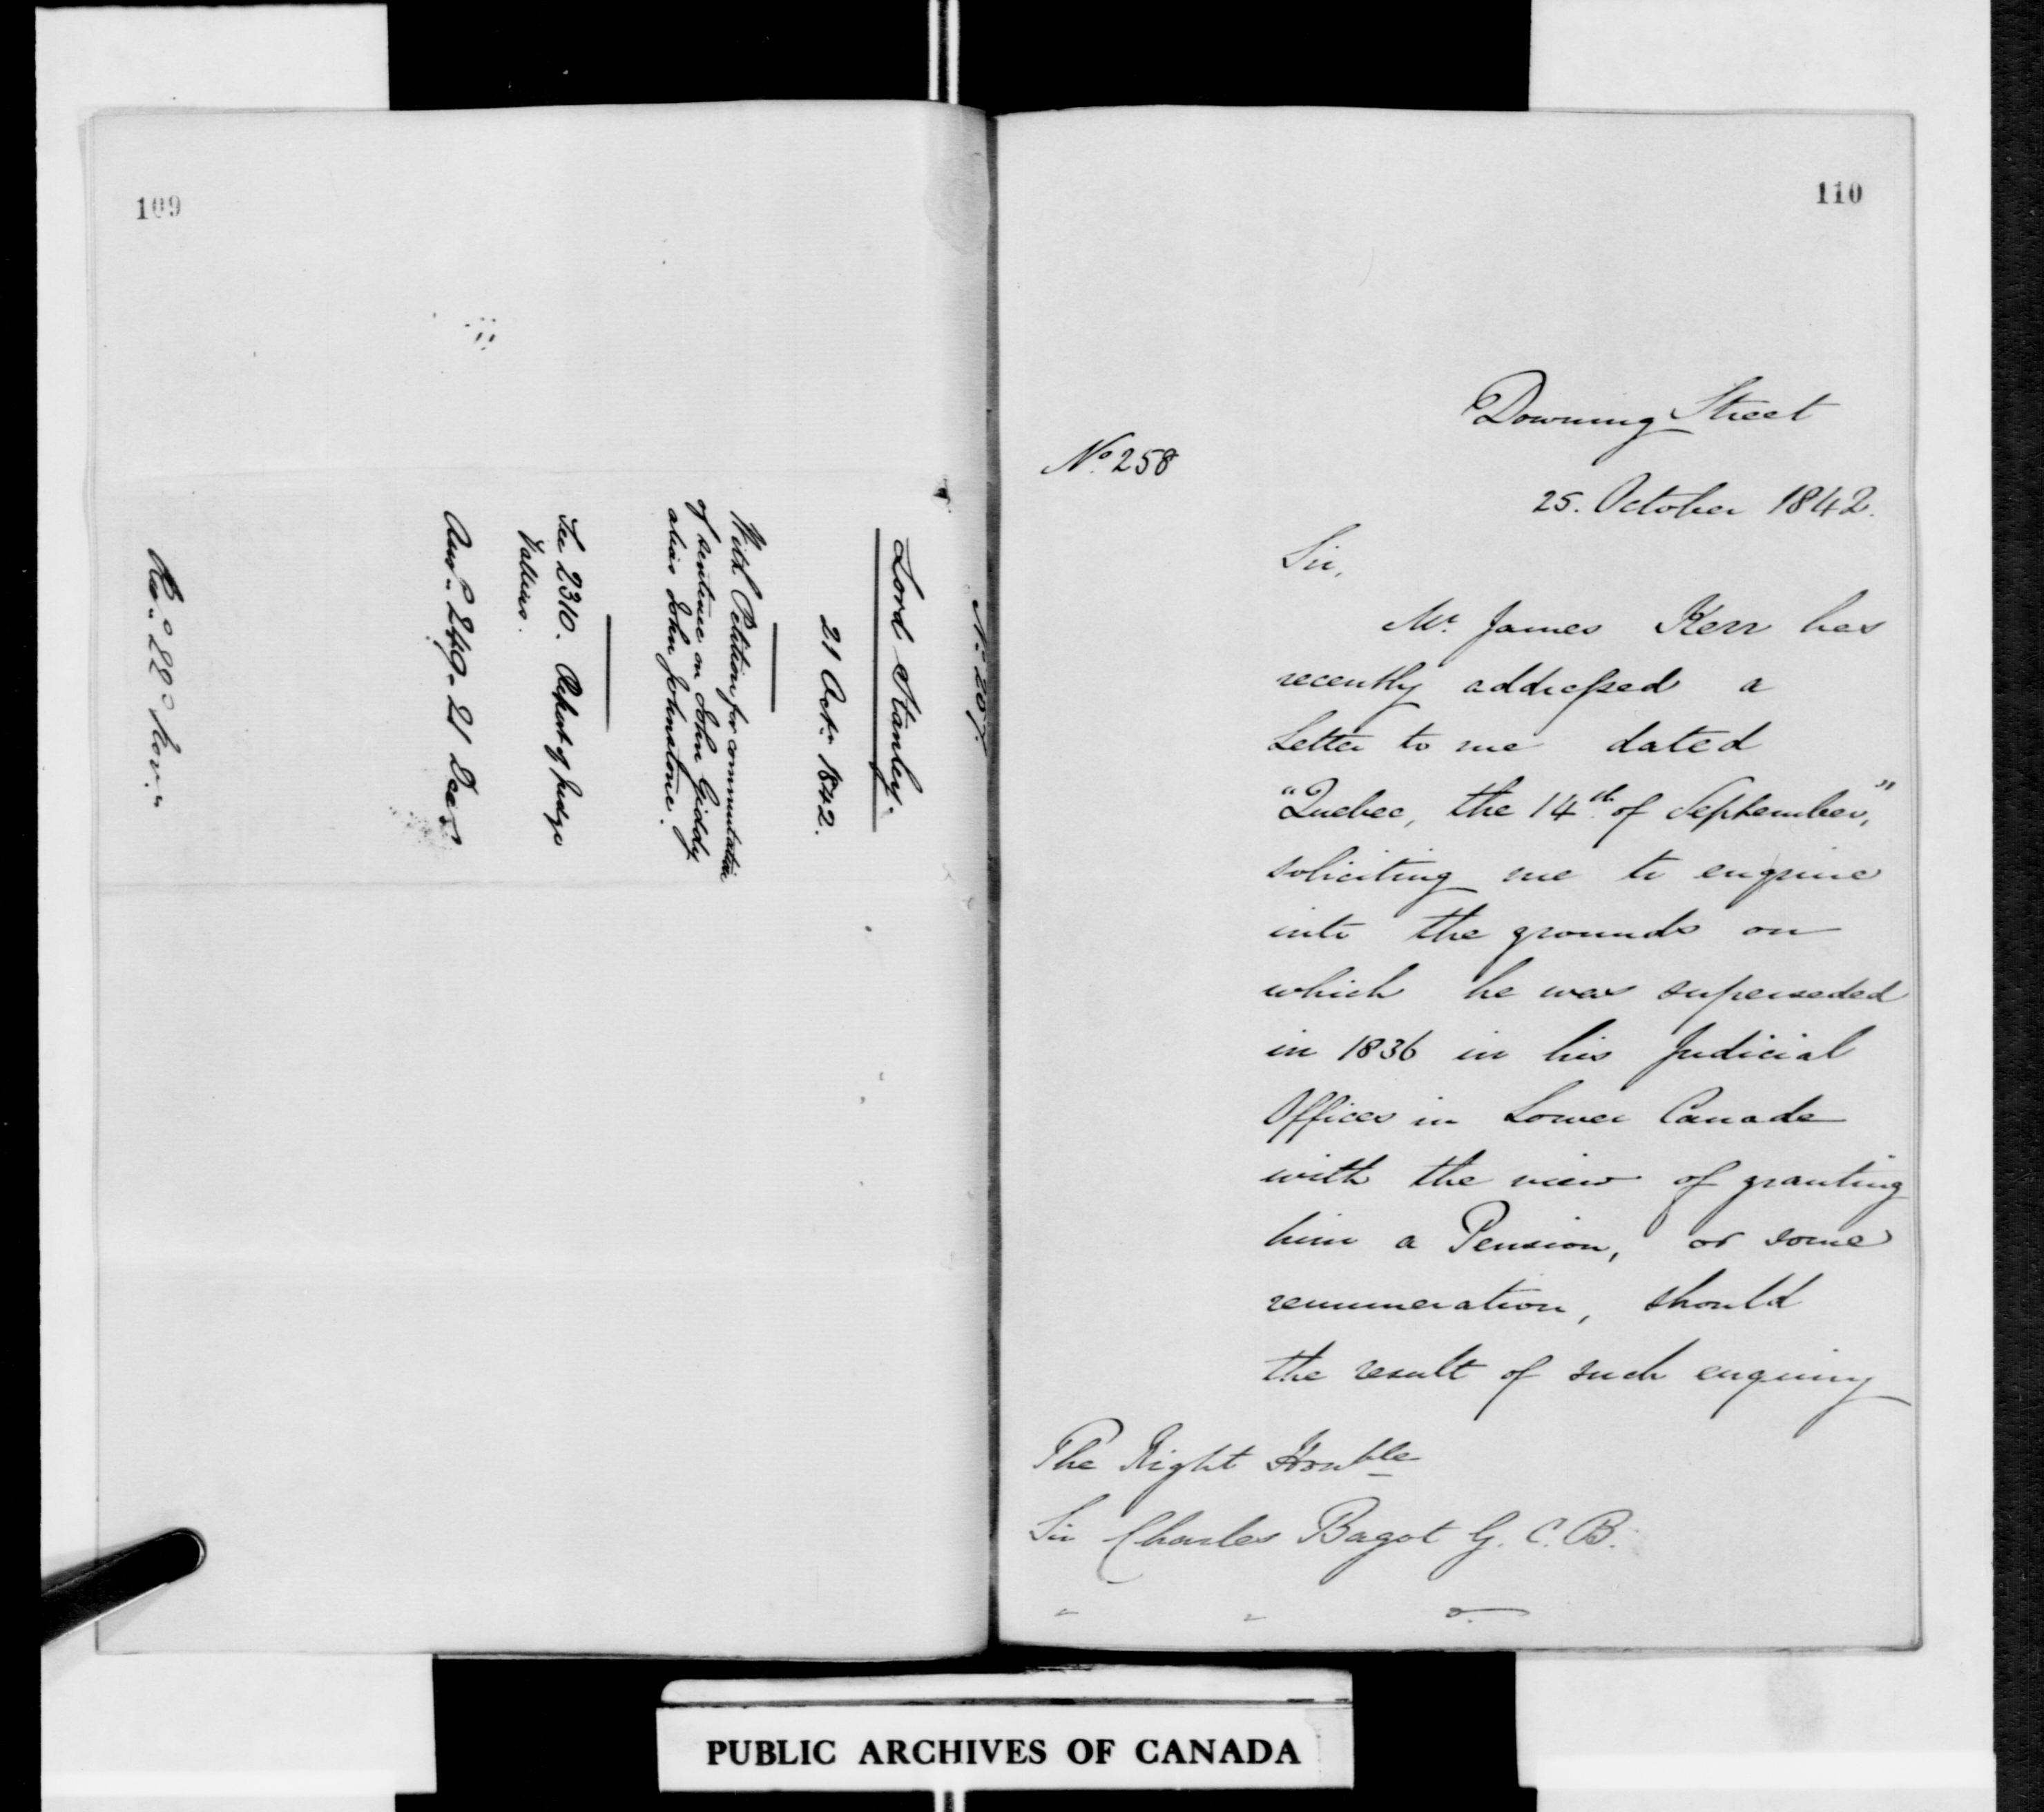 109
No. 257.
Lord Stanley.
21 Octr. 1842.
With Petition for commutation
of sentence on John Giddy
alias John Johnstone.
See 2310. Report of Judge
Vallières.
Answd. 249. 21 Decr.
110
Downing Street
No. 258
25. October 1842.
Sir,
Mr. James Kerr has
recently addressed a
Letter to me dated
"Quebec, the 14th. of September,"
soliciting me to enquire
into the grounds on
which he was superseded
in 1836 in his Judicial
Offices in Lower Canada
with the view of granting
him a Pension, or some
remuneration, should
the result of such enquiry
The Right Honble
Sir Charles Bagot G. C. B.
PUBLIC ARCHIVES OF CANADA